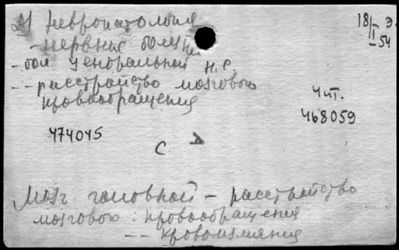 невропатология
18/I-54 Э.
- нервные болезни
- бол центральной н.с
- - расстройство мозгового
кровообращения
Чит.
468059
474045
С
Мозг головной - расстройство
мозгового кровообращения
- - кровоизлияния